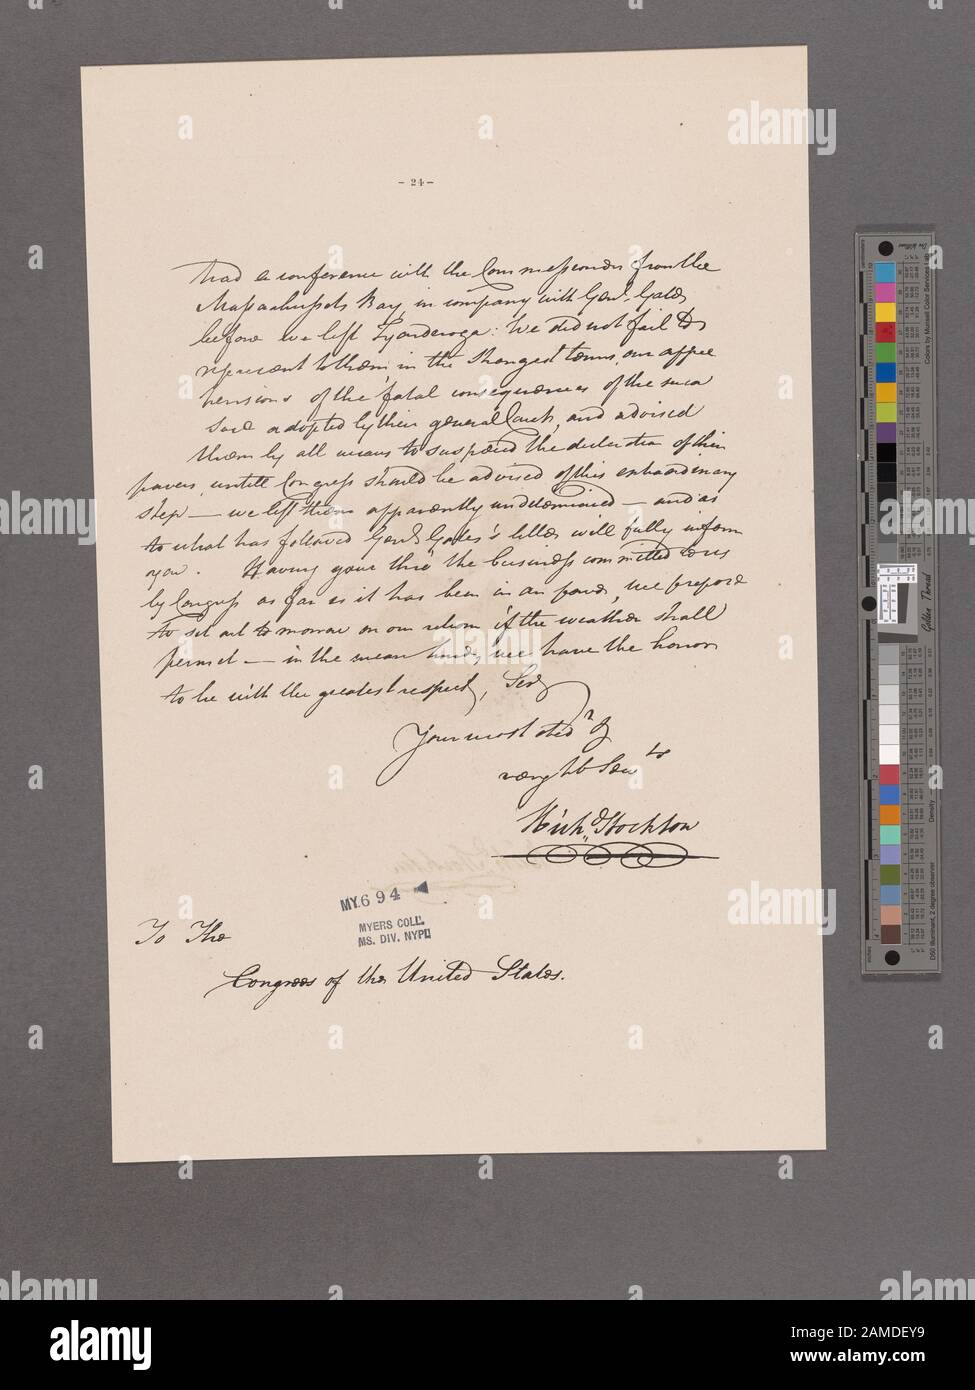 - 24 -
had a conference with the Commissioners from the
Massachusets Bay, in company with Genl. Gates,
before we left Tyonderoga: We did not fail to
represent to them in the strongest terms our appre
hensions of the fatal consequences of the mea
sure adopted by their general Court, and advised
them by all means to suspend the declaration of their
powers, untill Congress should be advised of this extraordinary
step — we left them apparently undetermined — and as
to what has followed Genl. Gates's letter will fully inform
you. Having gone thro the business committed to us
by Congress as far as it has been in our power, we propose
to set out to morrow on our return if the weather shall
permit — in the mean time, we have the honor
to be with the greatest respect, Sir
Your most obedt. &
very hb Servts
Richd. Stockton
MY.694
MYERS COLL.
MS. DIV. NYPL
To The
Congress of the United States.
alamy
Image ID: 2AMDEY9
www.alamy.com